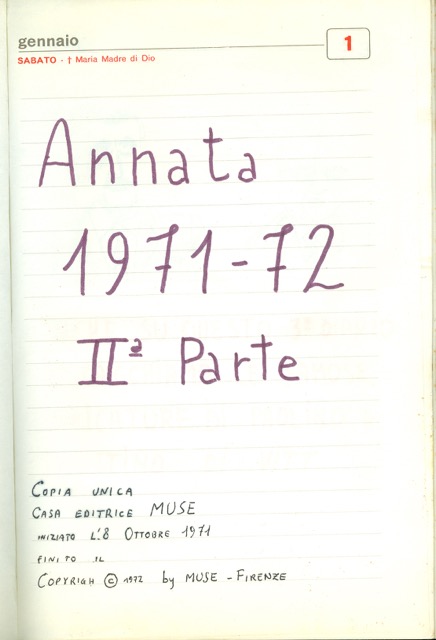 gennaio
1
SABATO - † Maria Madre di Dio
Annata
1971-72
IIª Parte
COPIA UNICA
CASA EDITRICE MUSE
INIZIATO L'8 OTTOBRE 1971
FINITO IL
COPYRIGH © 1972 by MUSE - FIRENZE